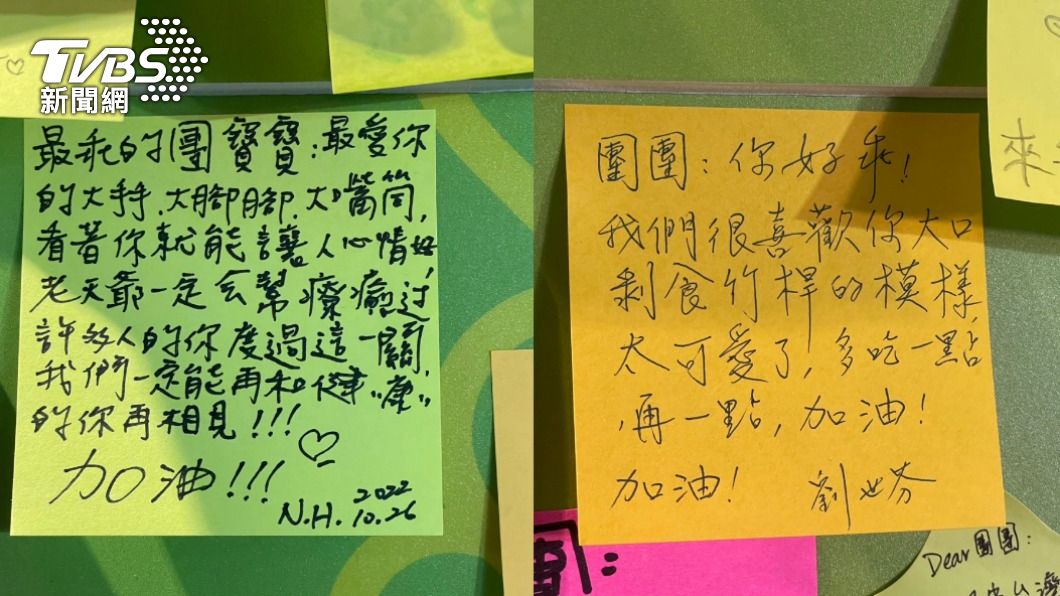 TVBS
新聞網
最乖的團寶寶：最愛你
的大手.大腳腳.大嘴筒,
看著你就能讓人心情好!
老天爺一定会幫療癒过
許多人的你度過這一關,
我們一定能再和健"康"
的你再相見!!!
加油!!!
2022
N.H. 10.26
團團：你好乖!
我們很喜歡你大口
剝食竹桿的模樣,
太可愛了,多吃一點
,再一點,加油!
加油! 劉世芬
來
Dear團團：